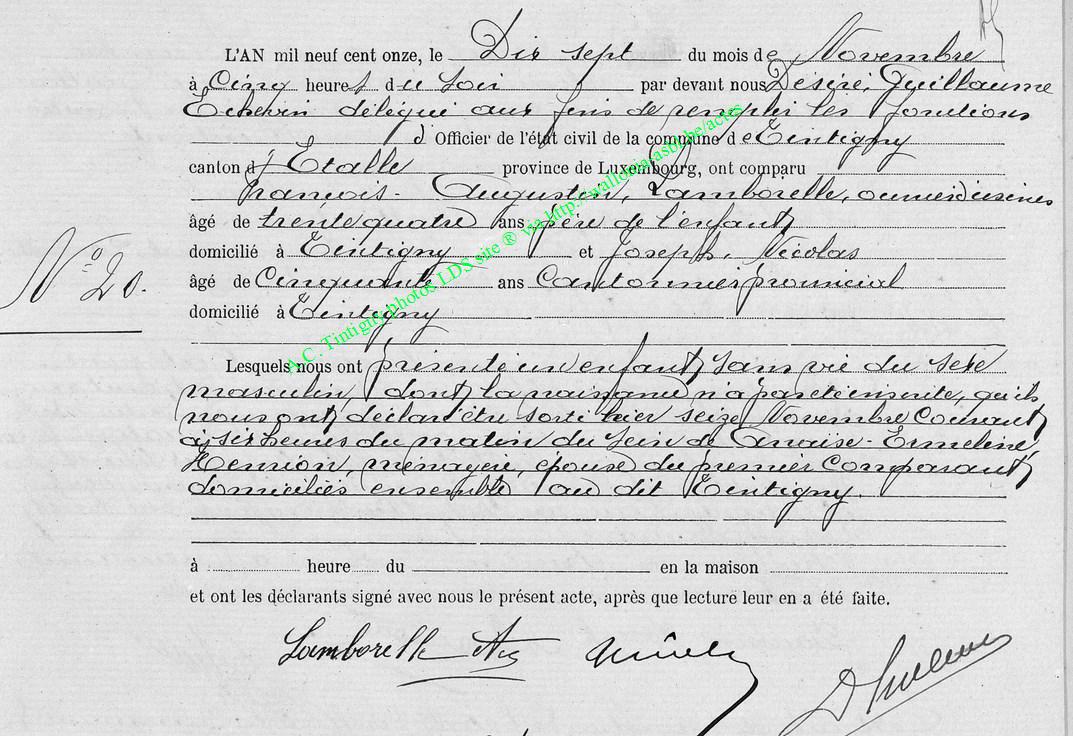 L'AN mil neuf cent onze, le Dix sept du mois de Novembre
à Cinq heures du soir par devant nous Désiré, Guillaume
Echevin délégué aux fins de remplir les fonctions
d' Officier de l'état civil de la commune de Tintigny
canton d' Etalle province de Luxembourg, ont comparu
François - Augustin, Lamborelle, ouvrier d'usines
âgé de trente quatre ans père de l'enfant
domicilié à Tintigny et Joseph, Nicolas
N° 20.
âgé de Cinquante ans Cantonnier provincial
domicilié à Tintigny
Lesquels nous ont présenté un enfant sans vie du sexe
masculin, dont la naissance n'a pas été inscrite, qu'ils
nous ont déclaré être sorti hier seize Novembre Courant
à six heures du matin du sein de Anaïse - Ermeline
Henrion, ménagère, épouse du premier Comparant
domiciliés ensemble au dit Tintigny.
à heure du en la maison
et ont les déclarants signé avec nous le présent acte, après que lecture leur en a été faite.
Lamborelle Aug
A.C. Tintigny photos LDS site ® via http://wallonia.asbl.be/actes